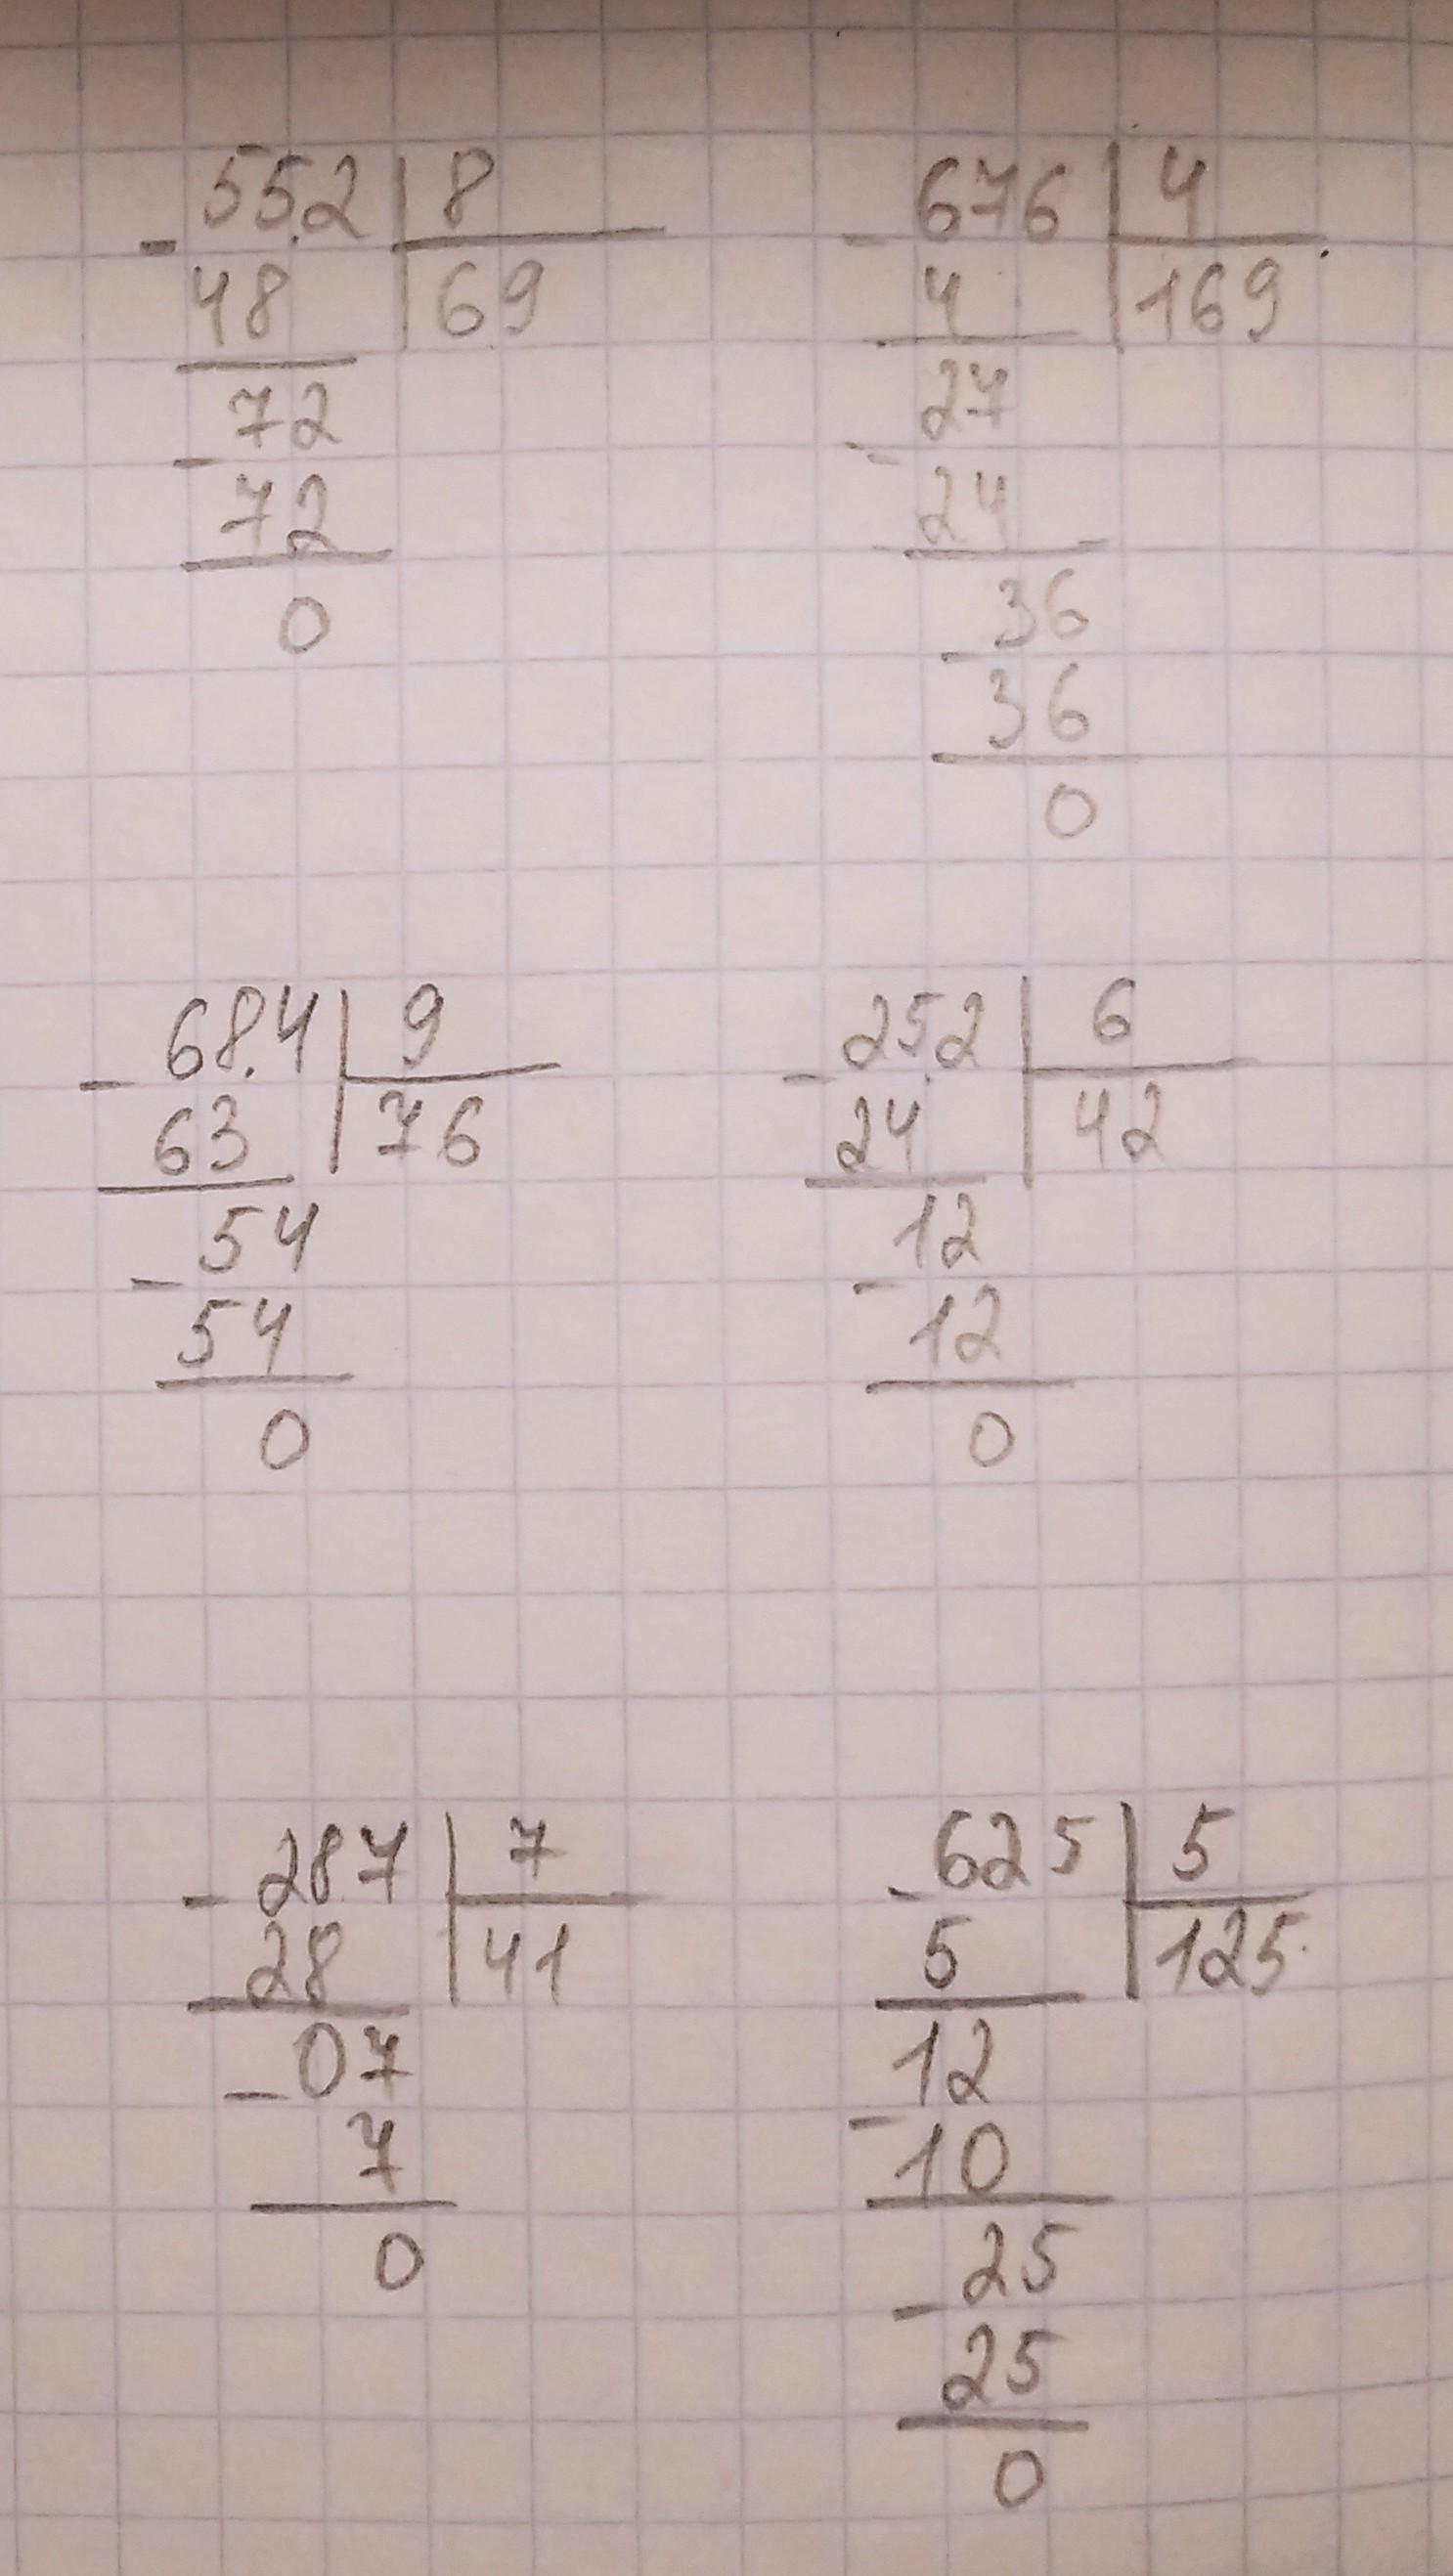 - 55.2 | 8
48 | 69
72
- 72
0
- 676 | 4
4 | 169
27
- 24
36
- 36
0
- 68.4 | 9
63 | 76
54
- 54
0
- 25.2 | 6
24 | 42
12
- 12
0
- 287 | 7
28 | 41
- 07
7
0
- 625 | 5
5 | 125
12
- 10
25
- 25
0